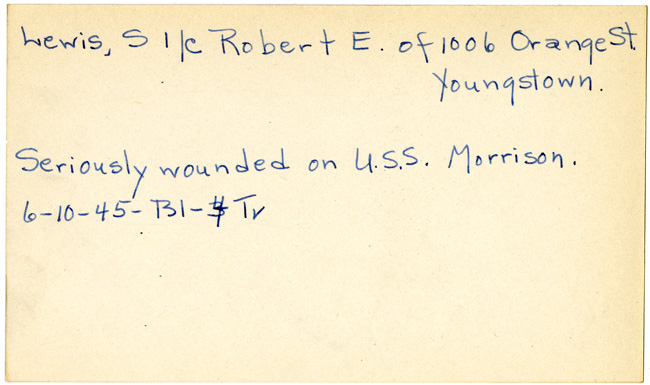 Lewis, S 1/c Robert E. of 1006 Orange St.
Youngstown.
Seriously wounded on U.S.S. Morrison.
6-10-45- B1- Tr